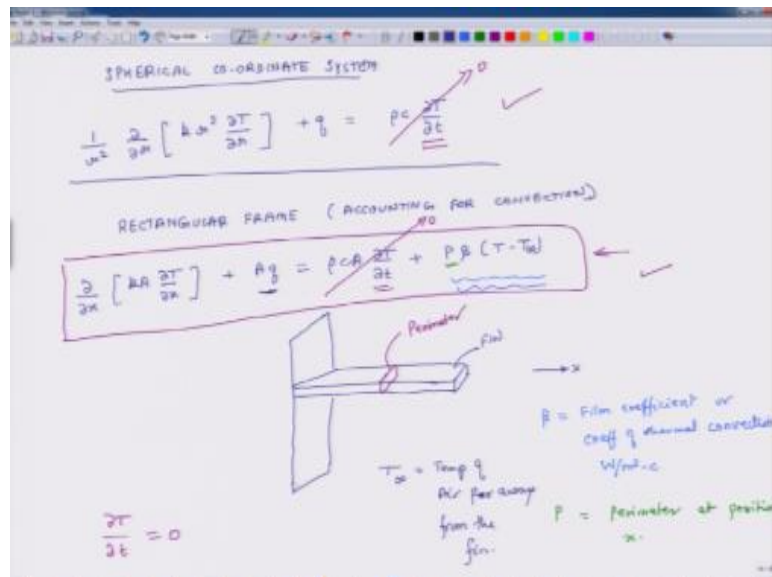 SPHERICAL CO-ORDINATE SYSTEM
1/r² ∂/∂r [ k r² ∂T/∂r ] + q = ρc ∂T/∂t 0
RECTANGULAR FRAME (ACCOUNTING FOR CONVECTION)
∂/∂x [ kA ∂T/∂x ] + Aq = ρcA ∂T/∂t + Pβ (T - T∞) 0
Perimeter
Fin
x
β = Film coefficient or
coeff of thermal convection
W/m²-c
T∞ = Temp of
Air far away
from the
fin.
P = Perimeter at position
x.
∂T/∂t = 0